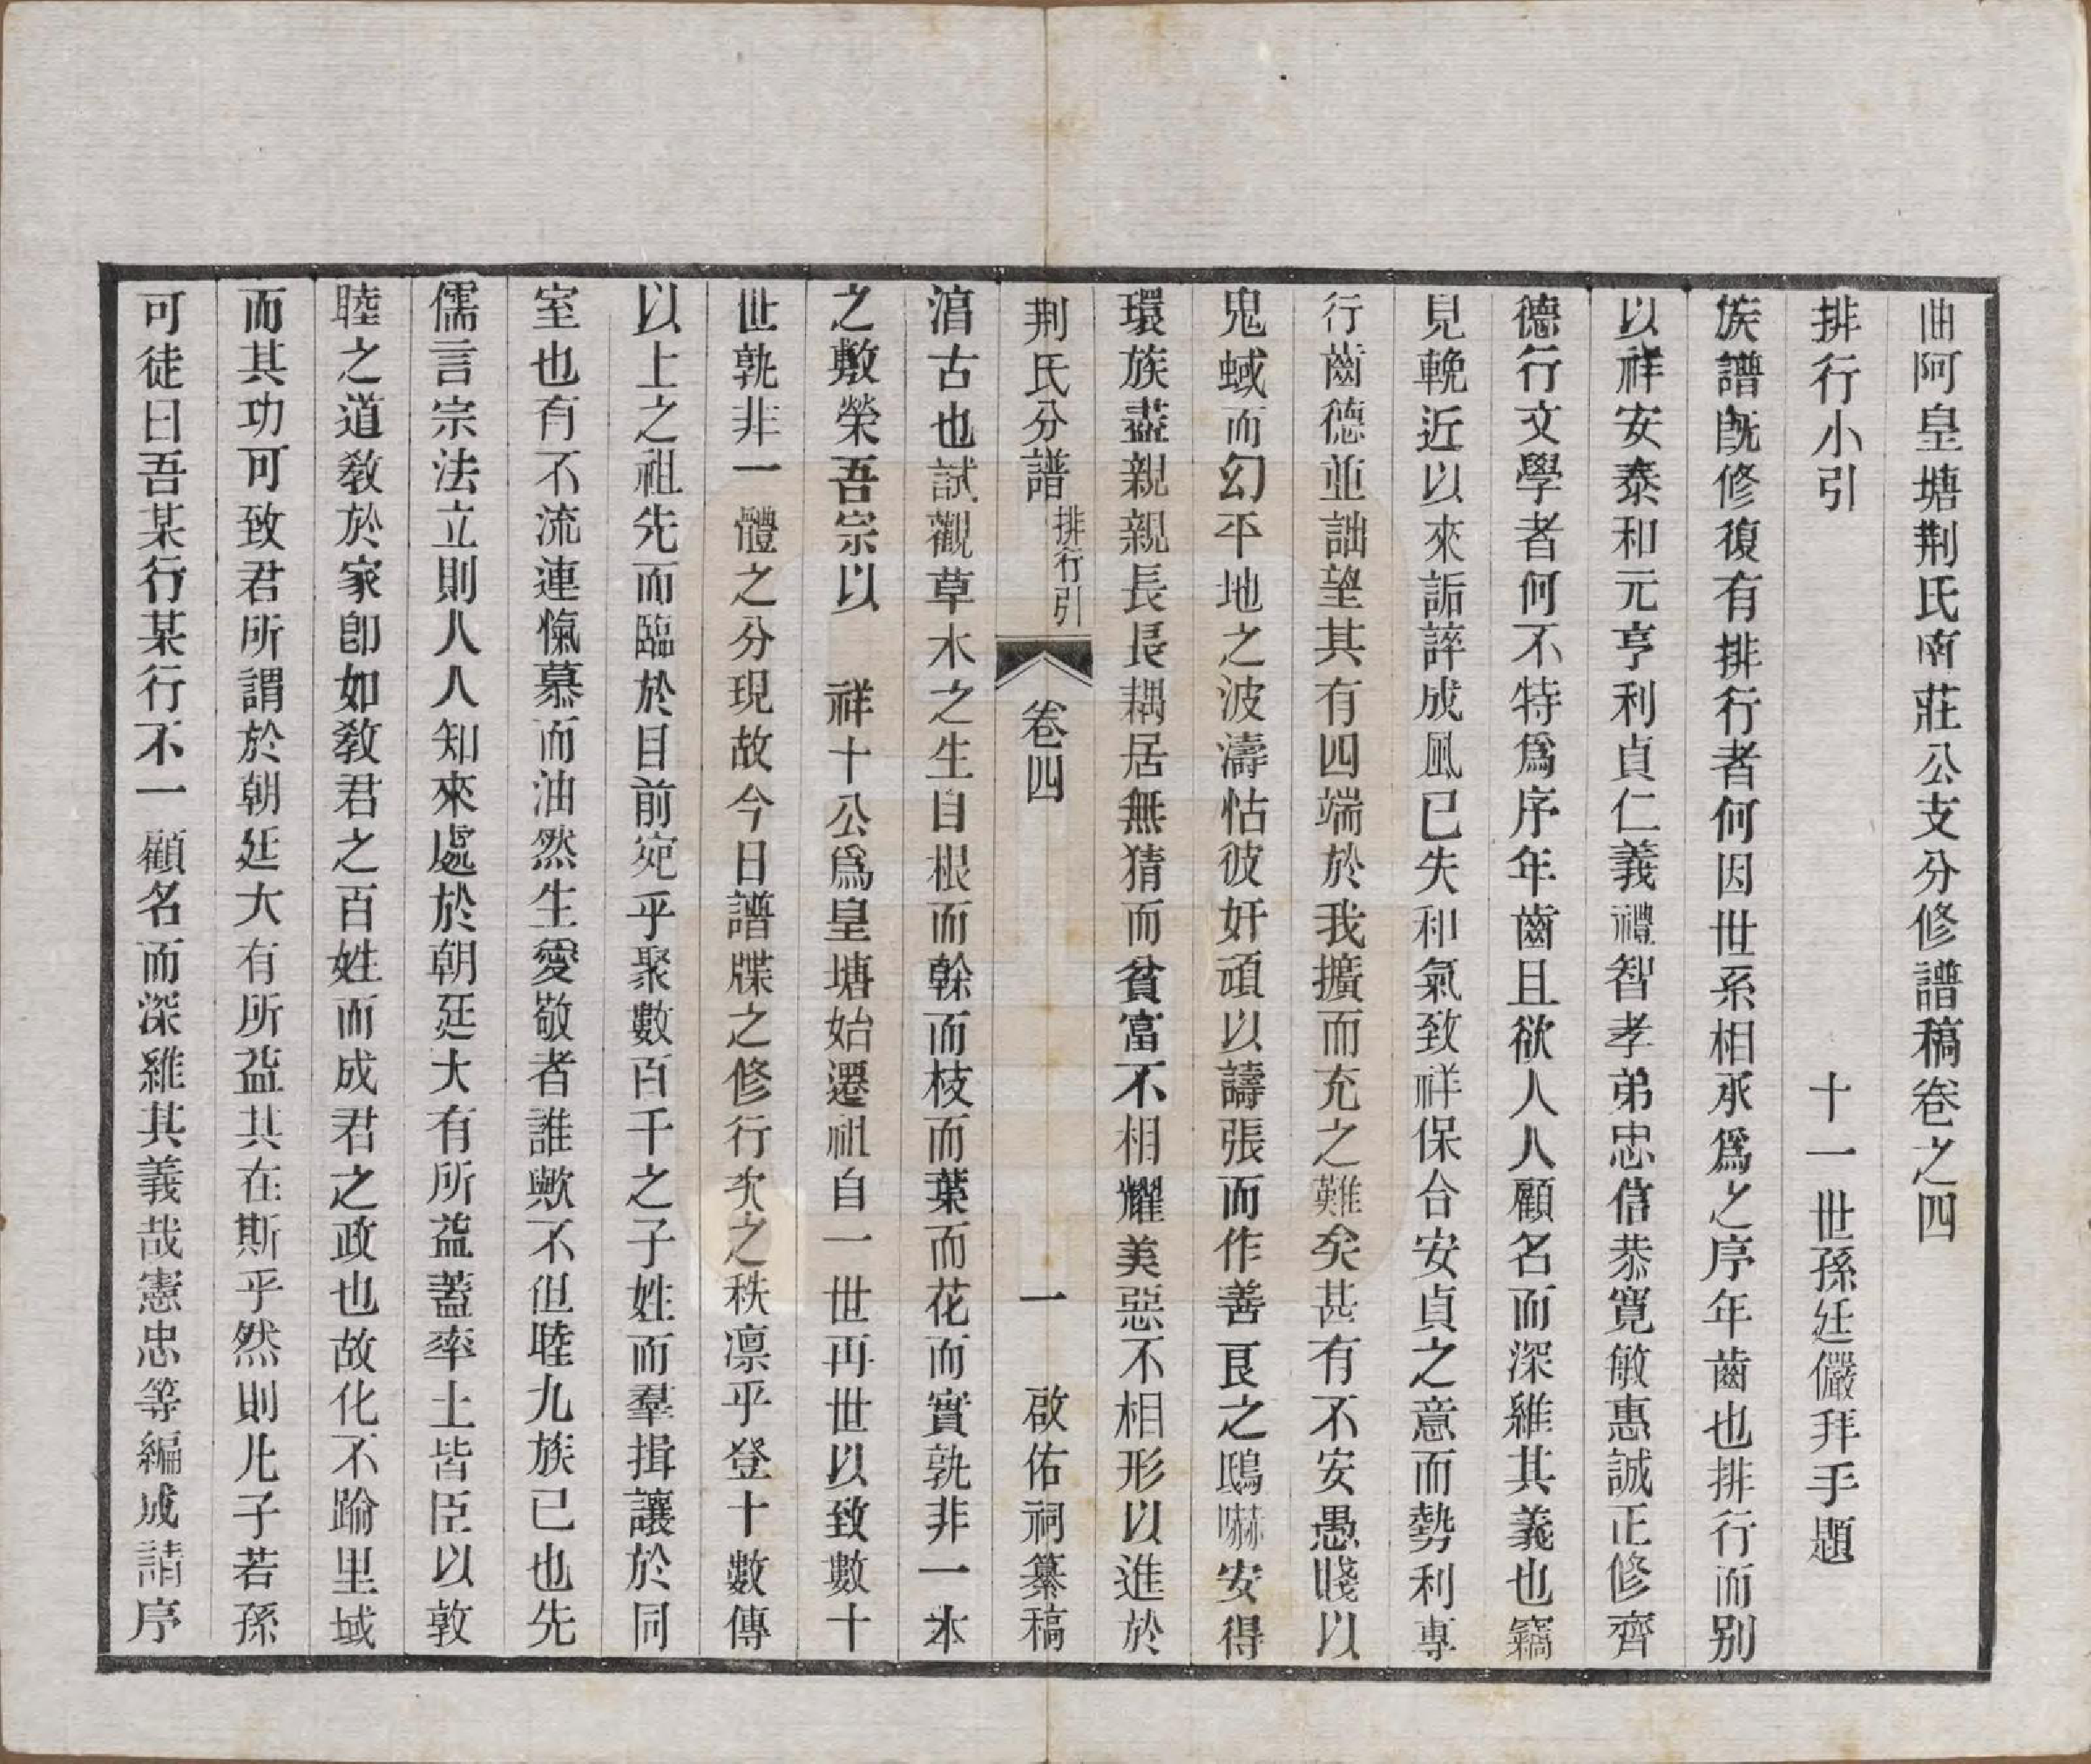 曲阿皇塘荆氏南莊公支分修譜稿卷之四
排行小引 十一世孫廷儼拜手題
族譜旣修復有排行者何因世系相承爲之序年齒也排行而別
以祥安泰和元亨利貞仁義禮智孝弟忠信恭寬敏惠誠正修齊
德行文學者何不特爲序年齒且欲人人顧名而深維其義也竊
見輓近以來詬誶成風已失和氣致祥保合安貞之意而勢利專
行齒德並詘望其有四端於我擴而充之難矣甚有不安愚賤以
鬼蜮而幻平地之波濤怙彼奸頑以譸張而作善良之鴟嚇安得
環族盡親親長長耦居無猜而貧富不相耀美惡不相形以進於
荆氏分譜 排行引 卷四 一 啟佑祠纂稿
滈古也試觀草木之生自根而榦而枝而葉而花而實孰非一本
之敷榮吾宗以 祥十公爲皇塘始遷祖自一世再世以致數十
世孰非一體之分現故今日譜牒之修行次之秩凛乎登十數傳
以上之祖先而臨於目前宛乎聚數百千之子姓而羣揖讓於同
室也有不流連愾慕而油然生愛敬者誰歟不但睦九族已也先
儒言宗法立則人人知來處於朝廷大有所益蓋率土皆臣以敦
睦之道敎於家卽如敎君之百姓而成君之政也故化不踰里域
而其功可致君所謂於朝廷大有所益其在斯乎然則凡子若孫
可徒曰吾某行某行不一顧名而深維其義哉憲忠等編成請序